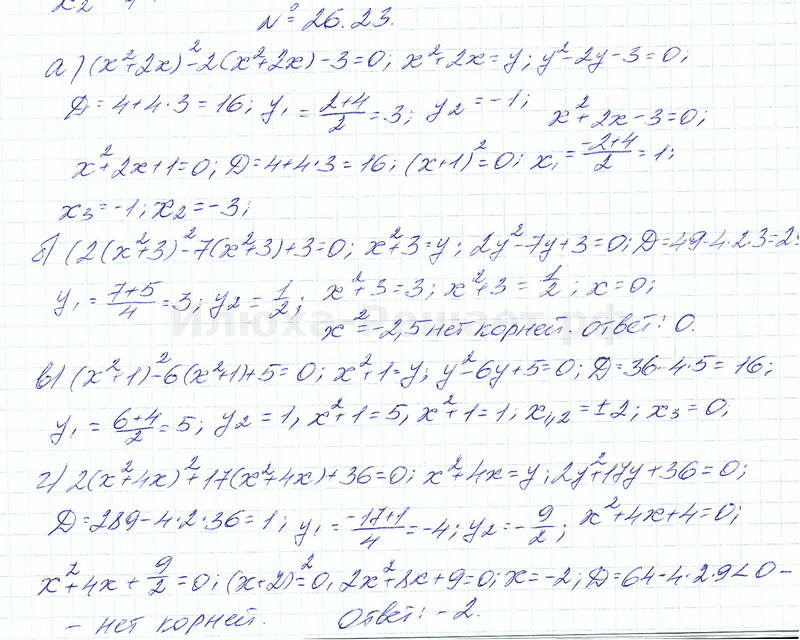 x₂
№ 26.23.
а) (x²+2x)²-2(x²+2x)-3=0; x²+2x=y; y²-2y-3=0;
D=4+4·3=16; y₁=(2+4)/2=3; y₂=-1; x²+2x-3=0;
x²+2x+1=0; D=4+4·3=16; (x+1)²=0; x₁=(-2+4)/2=1;
x₃=-1; x₂=-3;
б) (2(x²+3)²-7(x²+3)+3=0; x²+3=y; 2y²-7y+3=0; D=49-4·2·3=25
y₁=(7+5)/4=3; y₂=1/2; x²+3=3; x²+3=1/2; x=0;
x²=-2,5 нет корней. Ответ: 0.
в) (x²+1)²-6(x²+1)+5=0; x²+1=y; y²-6y+5=0; D=36-4·5=16;
y₁=(6+4)/2=5; y₂=1, x²+1=5, x²+1=1; x₁,₂=±2; x₃=0;
г) 2(x²+4x)²+17(x²+4x)+36=0; x²+4x=y; 2y²+17y+36=0;
D=289-4·2·36=1; y₁=(-17+1)/4=-4; y₂=-9/2; x²+4x+4=0;
x²+4x+9/2=0; (x+2)²=0, 2x²+8x+9=0; x=-2; D=64-4·2·9<0-
- нет корней. Ответ: -2.